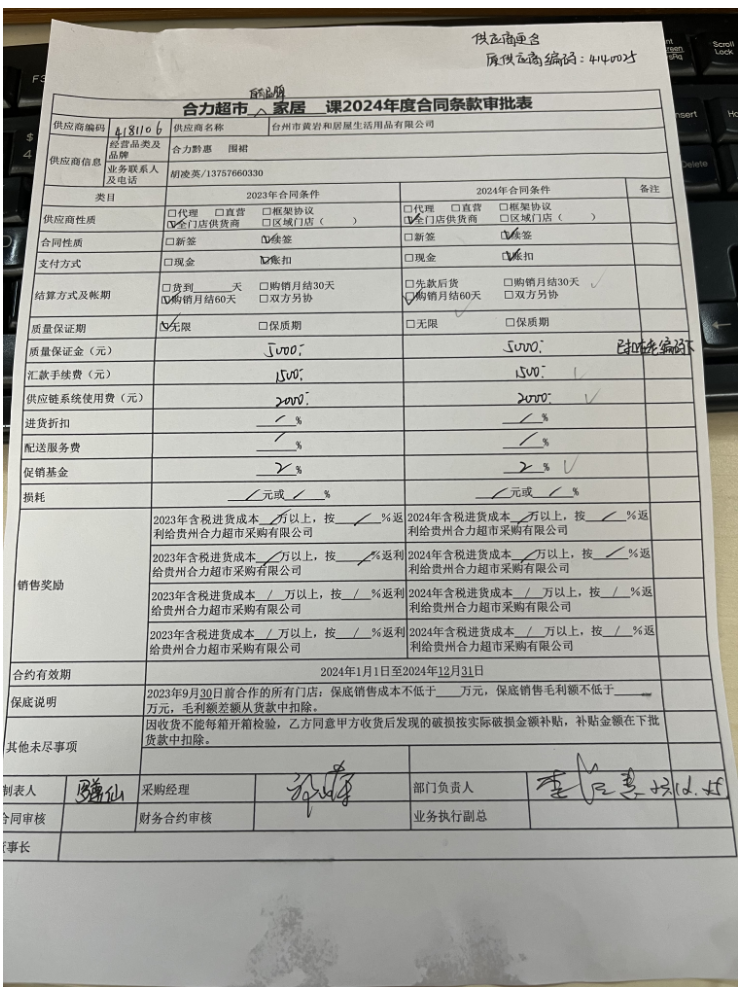 供应商更合
原供应商编码：4140025
合力超市 家居 课2024年度合同条款审批表
供应商编码 4181106 供应商名称 台州市黄岩和居屋生活用品有限公司
供应商信息 经营品类及品牌 合力黔惠 围裙
业务联系人及电话 胡凌英/13757660330
类目 2023年合同条件 2024年合同条件 备注
供应商性质 □代理 □直营 □框架协议 □代理 □直营 □框架协议
☑全门店供货商 □区域门店（ ） ☑全门店供货商 □区域门店（ ）
合同性质 □新签 ☑续签 □新签 ☑续签
支付方式 □现金 ☑账扣 □现金 ☑账扣
结算方式及帐期 □货到____天 □购销月结30天 □先款后货 □购销月结30天
☑购销月结60天 □双方另协 ☑购销月结60天 □双方另协
质量保证期 ☑无限 □保质期 □无限 □保质期
质量保证金（元） 5000 5000
汇款手续费（元） 1500 1500
供应链系统使用费（元） 2000 2000
进货折扣 / % / %
配送服务费 / % / %
促销基金 2 % 2 %
损耗 / 元或 / % / 元或 / %
销售奖励 2023年含税进货成本 / 万以上，按 / %返 2024年含税进货成本 / 万以上，按 / %返
利给贵州合力超市采购有限公司 利给贵州合力超市采购有限公司
2023年含税进货成本 / 万以上，按 / %返利 2024年含税进货成本 / 万以上，按 / %返
给贵州合力超市采购有限公司 利给贵州合力超市采购有限公司
2023年含税进货成本 / 万以上，按 / %返利 2024年含税进货成本 / 万以上，按 / %返
给贵州合力超市采购有限公司 利给贵州合力超市采购有限公司
2023年含税进货成本 / 万以上，按 / %返利 2024年含税进货成本 / 万以上，按 / %返
给贵州合力超市采购有限公司 利给贵州合力超市采购有限公司
合约有效期 2024年1月1日至2024年12月31日
保底说明 2023年9月30日前合作的所有门店：保底销售成本不低于____万元，保底销售毛利额不低于____
万元，毛利额差额从货款中扣除。
其他未尽事项 因收货不能每箱开箱检验，乙方同意甲方收货后发现的破损按实际破损金额补贴，补贴金额在下批
货款中扣除。
制表人 采购经理 部门负责人
合同审核 财务合约审核 业务执行副总
事长